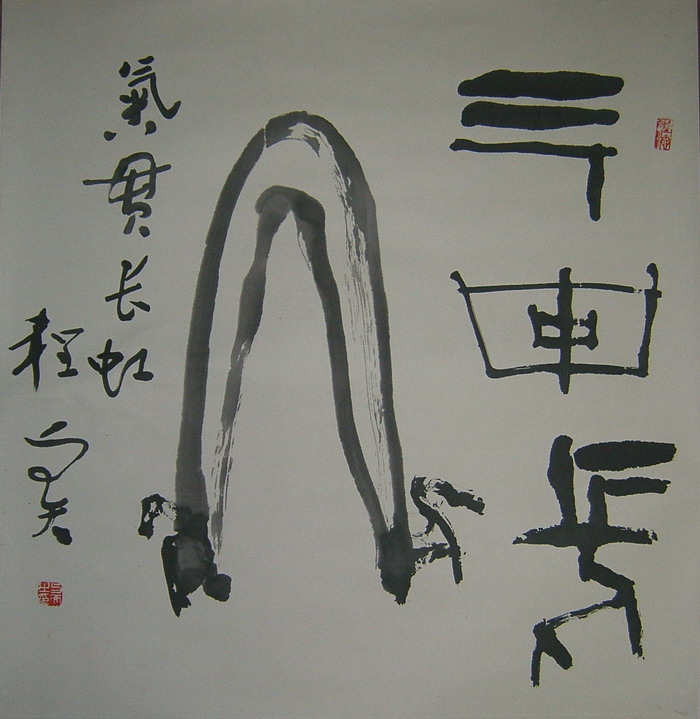 气貫長
虹
氣貫长虹
程